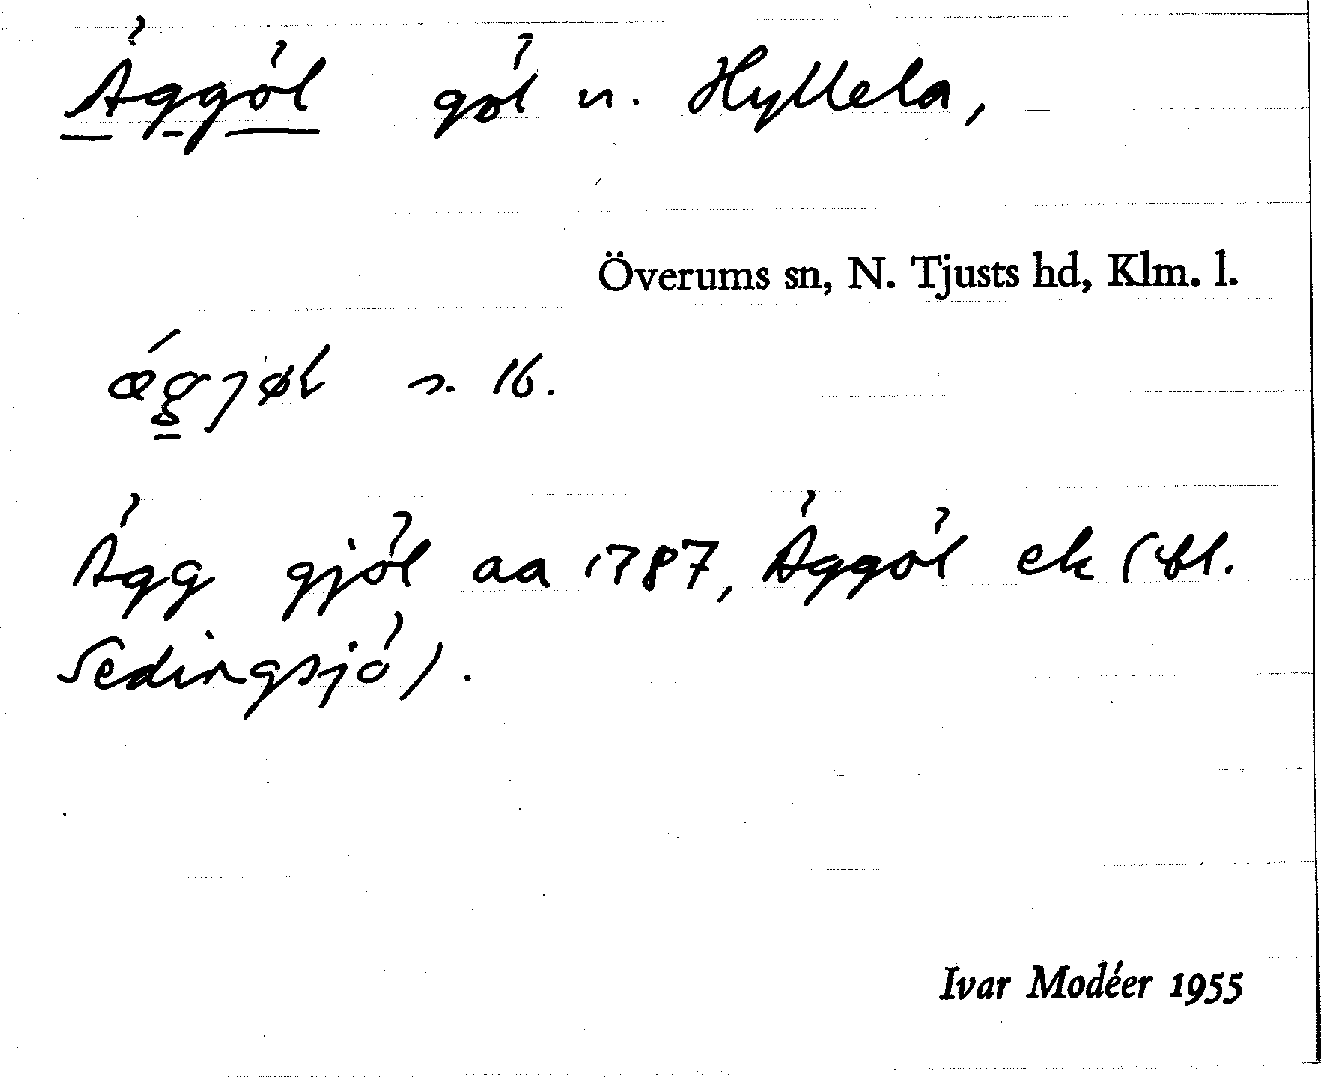 Äggöl göl n. Hyllela,
Överums sn, N. Tjusts hd, Klm. l.
ǽgjøl s. 16.
Ägg gjöl aa 1787, Äggöl ek (bl.
Sedingsjö).
Ivar Modéer 1955